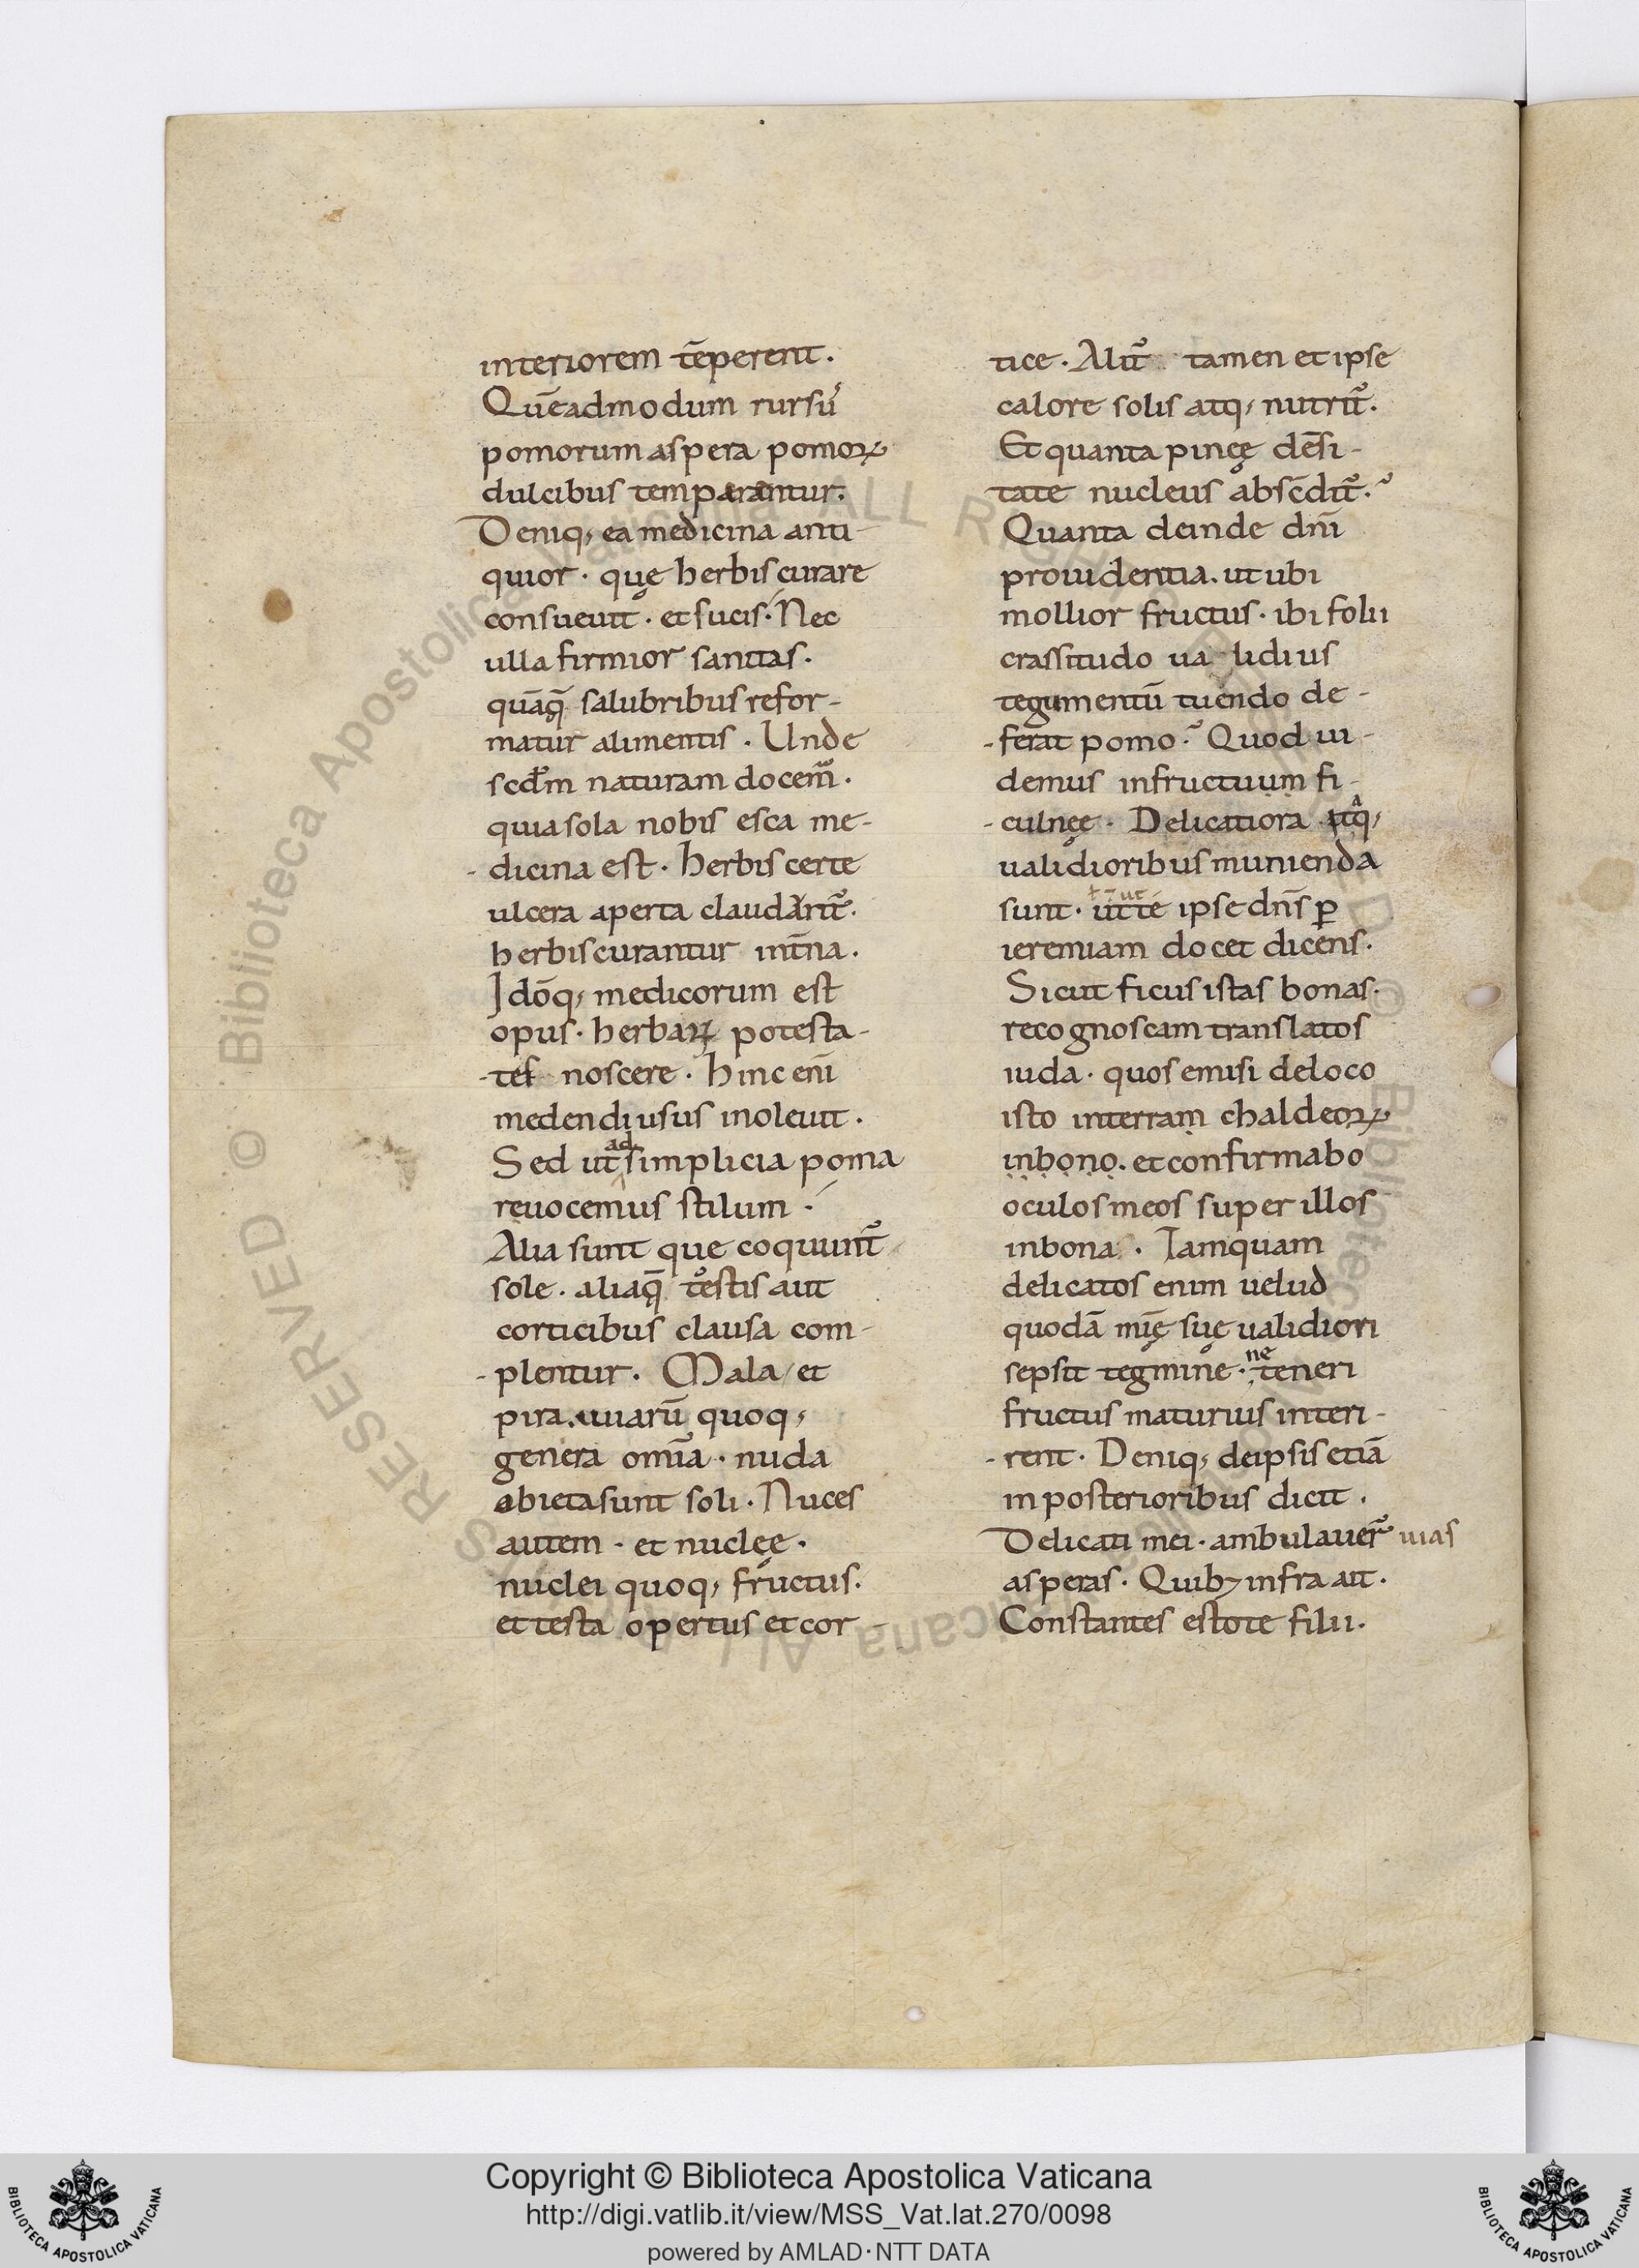 interiorem tēperent.
Quēadmodum rursū
pomorum aspera pomoꝝ
dulcibus temparantur.
Deniq; ea medicina anti-
quior · quę herbis curare
consueuit · et sucis. Nec
ulla firmior sanitas.
quāq̄ salubribus refor-
matur alimentis . Unde
scd̄m naturam docem̃ .
quia sola nobis esca me-
dicina est . herbis certe
ulcera aperta claudunt̃.
herbis curantur int̄na .
Idōq; medicorum est
opus · herbaꝝ potesta-
tes noscere . hinc eni̅
medendi usus inoleuit .
Sed ut ad simplicia poma
reuocemus stilum .
Alia sunt que coquunt̃
sole . aliaq̄ testis aut
corticibus clausa com-
plentur . Mala / et
pira. uuarū quoq;
genera om̅ia · nuda
obiecta sunt soli . Nuces
autem · et nuclęe .
nuclei quoq; fructus.
et testa opertus et cor-
tice . Alit̃ tamen et ipse
calore solis atq; nutrit̃.
Et quanta pinęe dēsi-
tate nucleus abscōdit̃.
Quanta deinde dn̄i
prouidentia. ut ubi
mollior fructus . ibi folii
crassitudo ualidius
tegumentū tuendo de-
ferat pomo . Quod ui-
demus in fructuum fi-
culnęe . Delicatiora itaq;
ualidioribus munienda
sunt . ut te ipse dn̄s ꝑ
ieremiam docet dicens.
Sicut ficus istas bonas.
recognoscam translatos
iuda . quos emisi de loco
isto in terram chaldeoꝝ
in bono. et confirmabo
oculos meos super illos
in bona . Tamquam
delicatos enim uelud
quodā mi̅ę suę ualidiori
sepsit tegmine . ne teneri
fructus maturius interi-
rent . Deniq; de ipsis etiā
in posterioribus dicit .
Delicati mei . ambulauer̃ uias
asperas . Quib; infra ait .
Constantes estote filii.
Copyright © Biblioteca Apostolica Vaticana
http://digi.vatlib.it/view/MSS_Vat.lat.270/0098
powered by AMLAD·NTT DATA